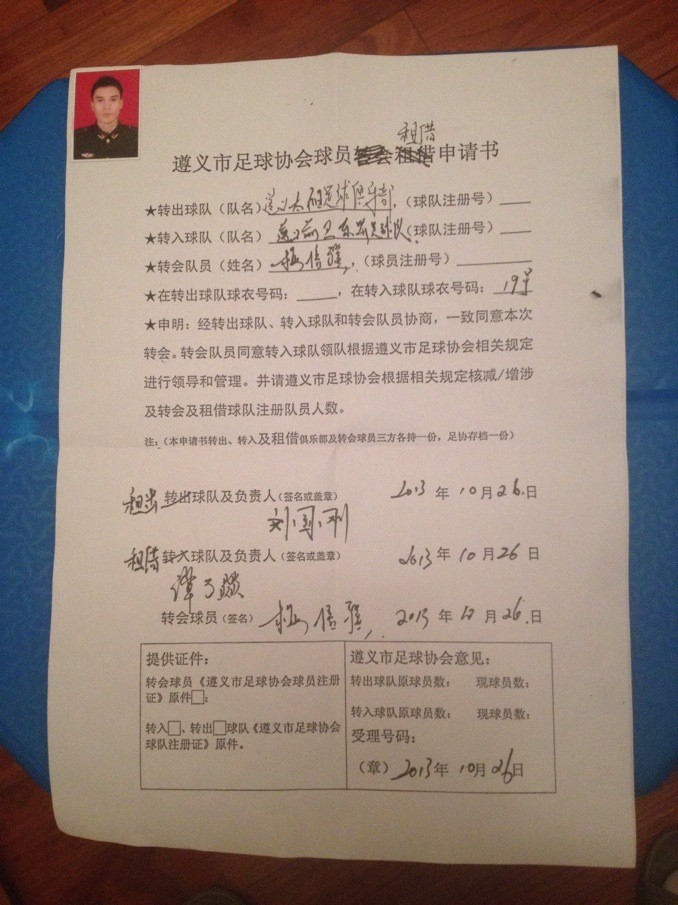 租借
遵义市足球协会球员申请书
★转出球队（队名）遵义太阳足球俱乐部，（球队注册号）
★转入球队（队名）足球队（球队注册号）
★转会队员（姓名）杨，（球员注册号）
★在转出球队球衣号码：，在转入球队球衣号码：19号
★申明：经转出球队、转入球队和转会队员协商，一致同意本次
转会。转会队员同意转入球队领队根据遵义市足球协会相关规定
进行领导和管理。并请遵义市足球协会根据相关规定核减/增涉
及转会及租借球队注册队员人数。
注：（本申请书转出、转入及租借俱乐部及转会球员三方各持一份，足协存档一份）
租出 转出球队及负责人（签名或盖章） 2013 年 10 月 26 日
刘国刚
租借 转入球队及负责人（签名或盖章） 2013 年 10 月 26 日
谭
转会球员（签名） 杨 2013 年 10 月 26 日
提供证件：
转会球员《遵义市足球协会球员注册
证》原件□；
转入□、转出□球队《遵义市足球协会
球队注册证》原件。
遵义市足球协会意见：
转出球队原球员数： 现球员数：
转入球队原球员数： 现球员数：
受理号码：
（章） 2013 年 10 月 26 日